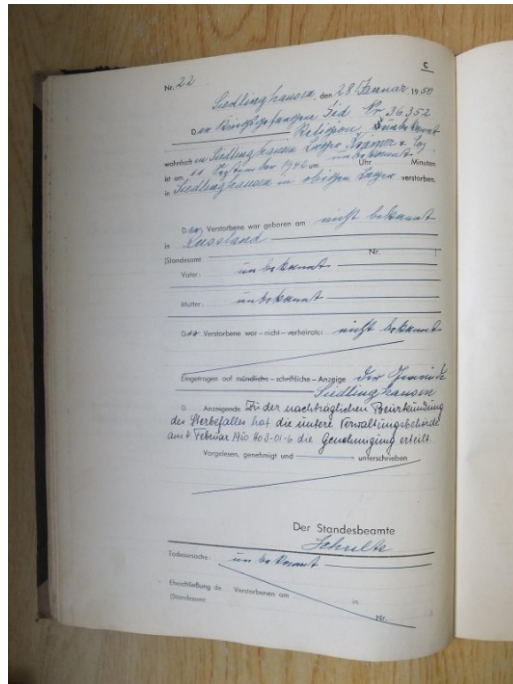 C
Nr. 22
Siedlinghausen, den 28 Januar 1950
Der Kriegsgefangene Sid Nr 36352
Religion unbekannt
wohnhaft in Siedlinghausen Lager Krämer
ist am 11 September 194 um unbekannt Uhr Minuten
in Siedlinghausen in obigen Lager verstorben.
Der Verstorbene war geboren am nicht bekannt
in Russland
(Standesamt Nr. )
Vater: unbekannt
Mutter: unbekannt
Der Verstorbene war – nicht – verheiratet nicht bekannt
Eingetragen auf mündliche – schriftliche – Anzeige der Gemeinde
Siedlinghausen
D Anzeigende Zu der nachträglichen Beurkundung
des Sterbefalles hat die untere Verwaltungsbehörde
am Februar 1950 403-01-6 die Genehmigung erteilt.
Vorgelesen, genehmigt und unterschrieben
Der Standesbeamte
Schulte
Todesursache: unbekannt
Eheschließung de Verstorbenen am in
(Standesamt Nr.